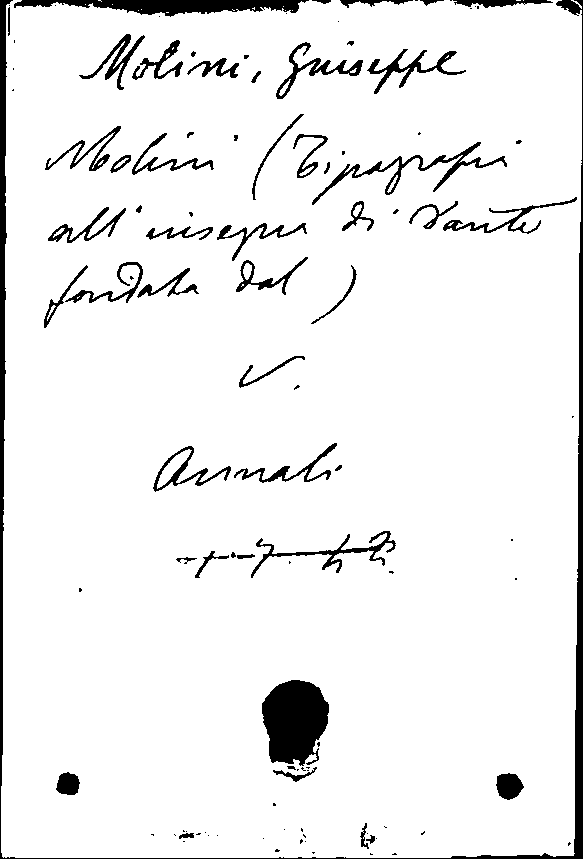 Molini, Giuseppe
Molini (Tipografia
all'insegna di Dante
fondata dal)
V.
Annali